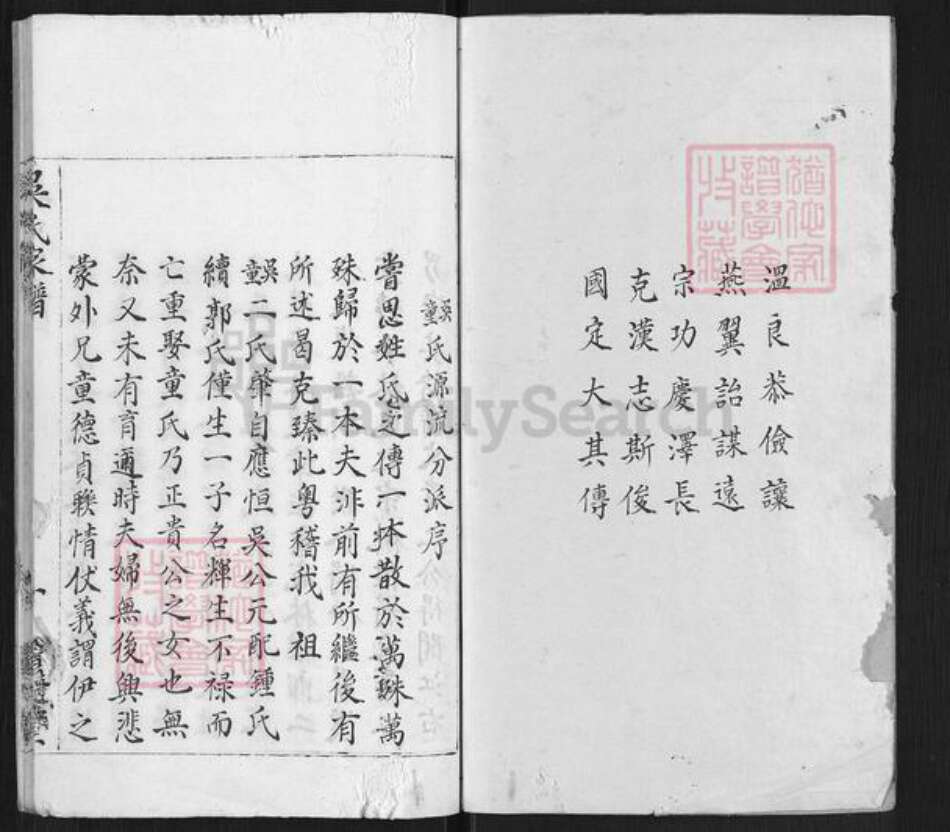 溫良恭儉讓
燕翼詒謀遠
宗功慶澤長
克漢志斯俊
國定大其傳
吳童氏源流分派序
嘗思姓氏之傳一本散於萬殊萬
殊歸於一本夫非前有所繼後有
所述曷克臻此粵稽我祖
吳童二氏肇自應恒吳公元配鍾氏
續郭氏僅生一子名輝生不祿而
亡重娶童氏乃正貴公之女也無
奈又未有育邇時夫婦無後興悲
蒙外兄童德貞聯情仗義謂伊之
吳氏家譜
一
FamilySearch